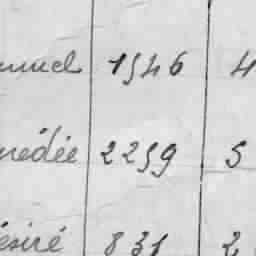 nuel 1546 4
médée 2259 5
ésiré 831 2